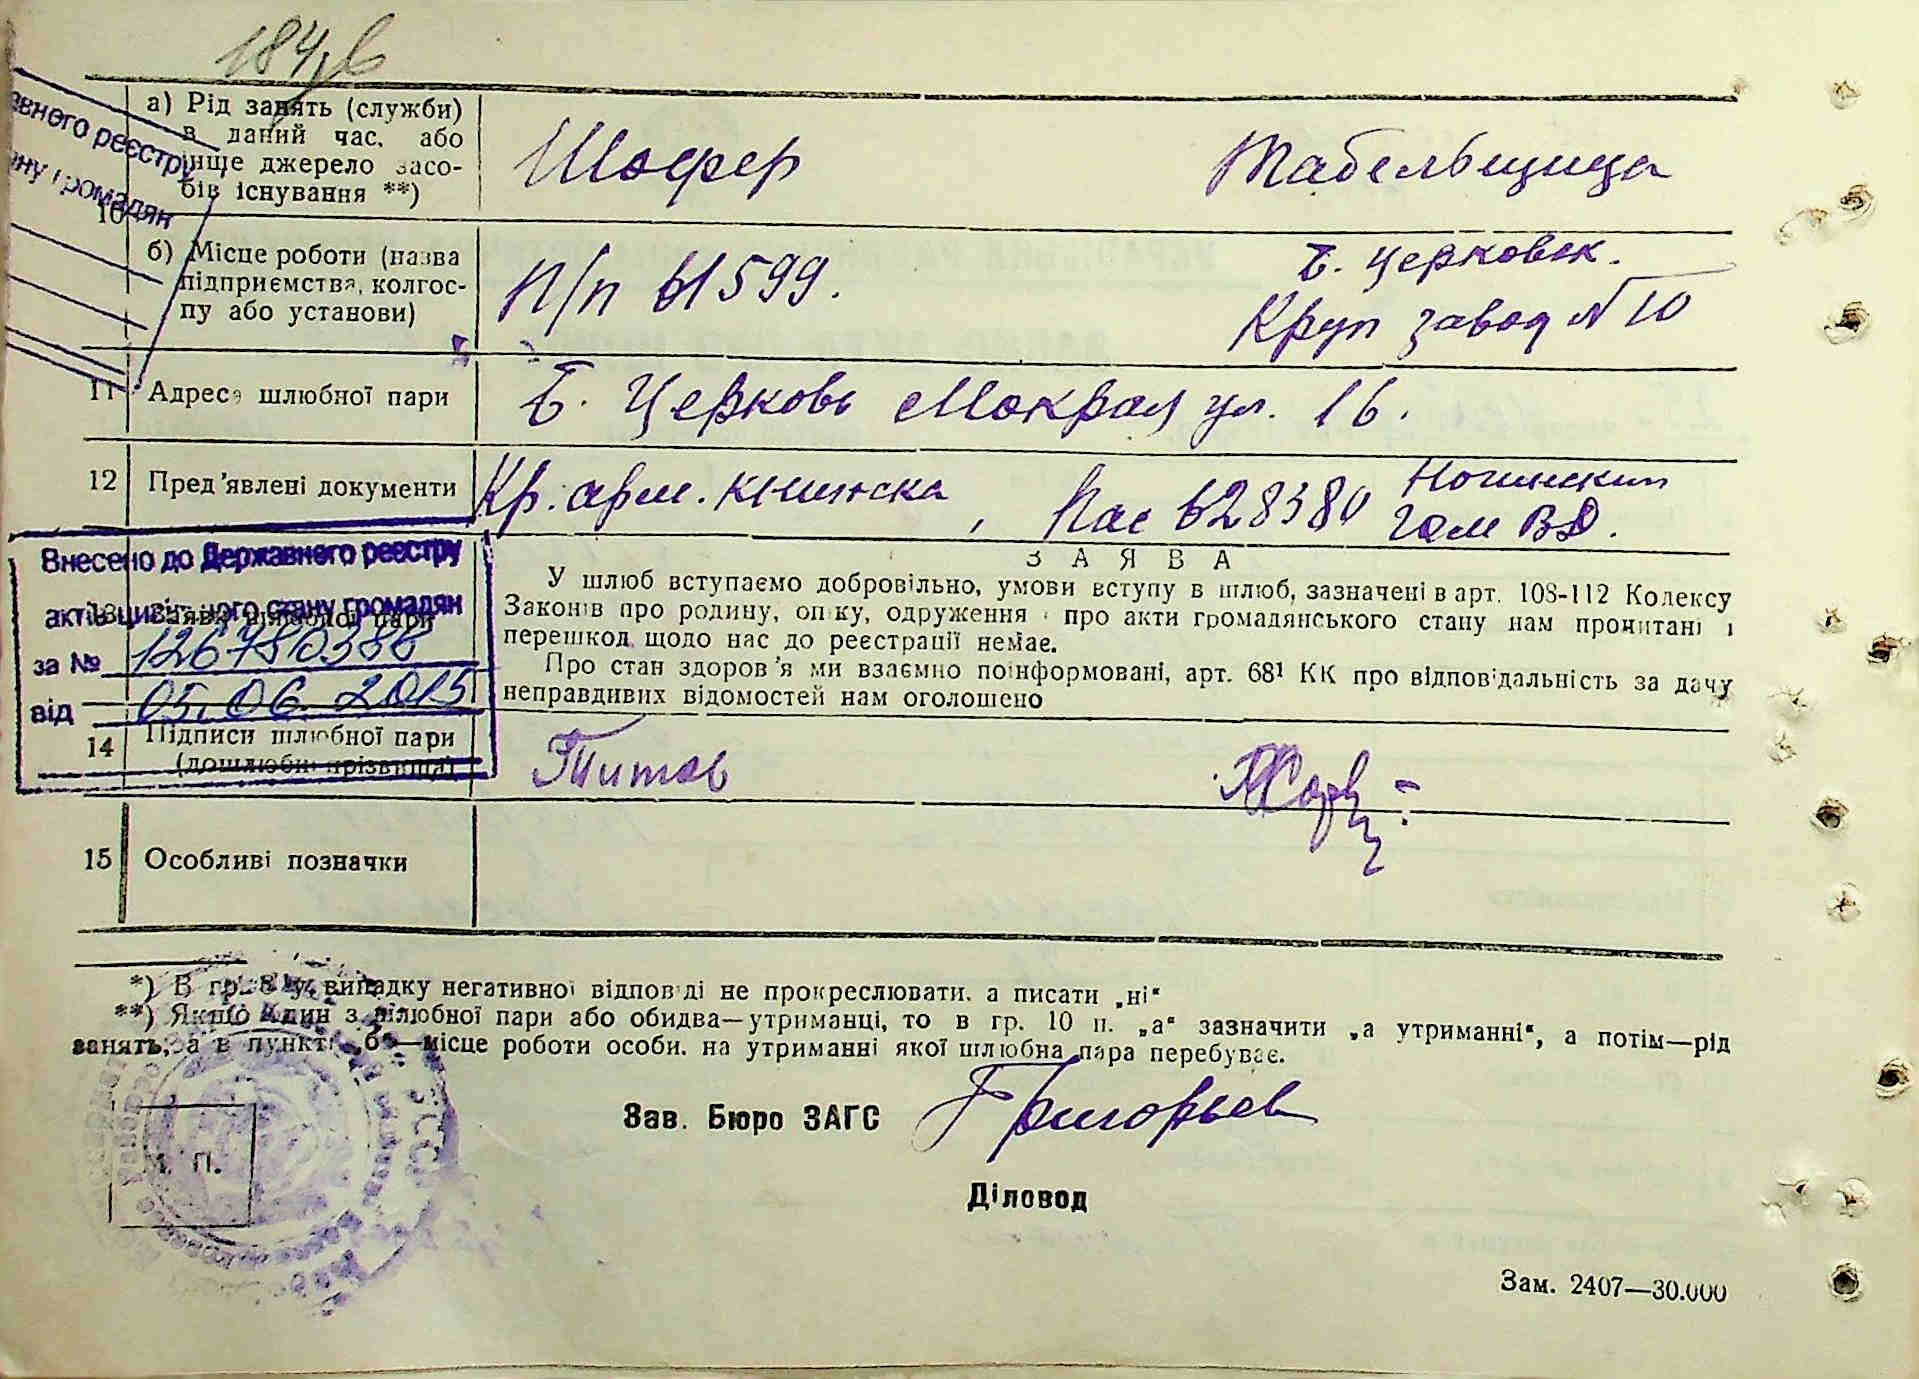 184,6
а) Рід занять (служби)
в даний час, або
інще джерело засо-
бів існування **)
Шофер
Табельщица
10
б) Місце роботи (назва
підприємства, колгос-
пу або установи)
П/п 61599.
Б. Церковск.
Круп завод № 10
11 Адреса шлюбної пари
Б. Церковь Мокрая ул. 16.
12 Пред'явлені документи
Кр. арм. книжка, Пас 628380 Ногинским
Гом ВД.
Внесено до Державного реєстру
актів цивільного стану громадян
за № 1267810388
від 05.06.2015
13 Заява шлюбної пари
ЗАЯВА
У шлюб вступаємо добровільно, умови вступу в шлюб, зазначені в арт. 108-112 Кодексу
Законів про родину, опіку, одруження і про акти громадянського стану нам прочитані і
перешкод щодо нас до реєстрації немає.
Про стан здоров'я ми взаємно поінформовані, арт. 68¹ КК про відповідальність за дачу
неправдивих відомостей нам оголошено
14 Підписи шлюбної пари
(дошлюбні прізвища)
Титов
15 Особливі позначки
*) В гр. 8 у випадку негативної відповіді не прокреслювати, а писати „ні“
**) Якщо один з шлюбної пари або обидва—утриманці, то в гр. 10 п. „а“ зазначити „а утриманні“, а потім—рід
занять, а в пункті „б“—місце роботи особи, на утриманні якої шлюбна пара перебуває.
Зав. Бюро ЗАГС Григорьев
М. П.
Діловод
Зам. 2407—30.000